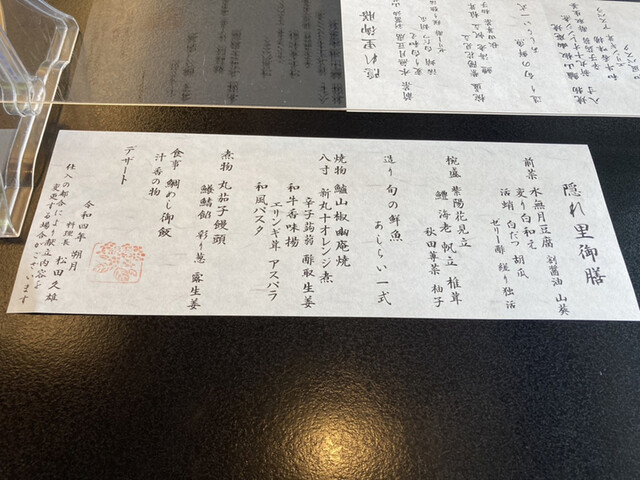 隠れ里御膳
前菜 水無月豆腐 割醤油 山葵
変り白和え
活蛸 白だつ 胡瓜
ゼリー酢 縒り独活
椀盛 紫陽花見立
鱧 海老 帆立 椎茸
秋田蓴菜 柚子
造り 旬の鮮魚
あしらい一式
焼物 鱸山椒幽庵焼
八寸 新丸十オレンジ煮
辛子蒟蒻 酢取生姜
和牛香味揚
エリンギ茸 アスパラ
和風バスク
煮物 丸茄子饅頭
鰊鯖餡 彩り葱 露生姜
食事 鯛めし御飯
汁 香の物
デザート
令和四年 朔月
料理長 松田久雄
仕入の都合により献立内容を
変更する場合がございます
隠れ里御膳
造り 旬の鮮魚
あしらい一式